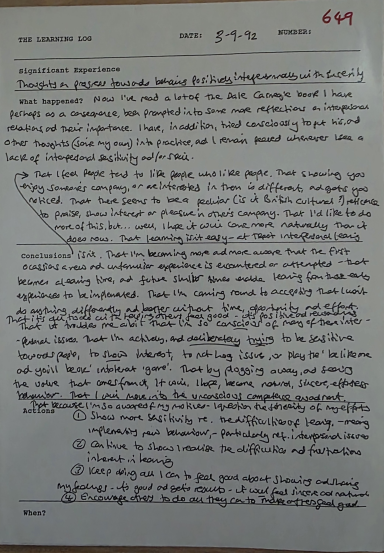 649
THE LEARNING LOG DATE: 3-9-92 NUMBER:
Significant Experience
Thoughts on progress towards behaving positively interpersonally with sincerity
What happened? Now I've read a lot of the Dale Carnegie book I have
perhaps as a consequence, been prompted into some more reflections on interpersonal
relations and their importance. I have, in addition, tried consciously to put his, and
other thoughts (some my own) into practice, and I remain peeved whenever I see a
lack of interpersonal sensitivity and/or skill.
That I feel people tend to like people who like people. That showing you
enjoy someone's company, or are interested in them is different, and gets you
noticed. That there seems to be a peculiar (is it British cultural?) reticence
to praise, show interest or pleasure in other's company. That I'd like to do
more of this, but... well, I hope it will come more naturally than it
does now. That learning isn't easy - at least interpersonal learning
Conclusions isn't. That I'm becoming more and more aware that the first
occasion a new and unfamiliar experience is encountered or attempted - that
becomes learning time, and future similar times enable learning from those early
experiences to be implemented. That I'm coming round to accepting that I won't
do anything differently and better without time, opportunity and effort.
That it feels good - it's positive and rewarding
That it troubles me a bit that I'm so conscious of many of these inter-
personal issues. That I'm actively, and deliberately trying to be sensitive
towards people, to show interest, to not hog issues, or play the 'be like me
and you'll be ok' intolerant 'game'. That by plugging away, and seeing
the value that comes from it, it will, I hope, become natural, sincere, effortless
behaviour. That I will move into the unconscious competence quadrant.
That because I'm so aware of my motives I question the sincerity of my efforts
Actions ① Show more sensitivity re. the difficulties of learning, - meaning
implementing new behaviour, - particularly ref. interpersonal issues
② Continue to show I realise the difficulties and frustrations
inherent in learning
③ Keep doing all I can to feel good about showing and sharing
my feelings - it's good and gets results - it will feel sincere and natural
④ Encourage others to do all they can to make others feel good
When?